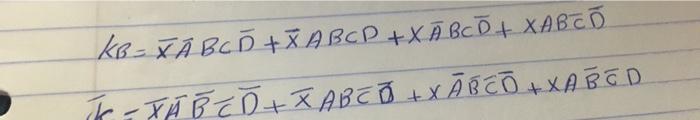 KB = X̅ A̅ B C D̅ + X̅ A B C D + X A̅ B C D̅ + X A B C̅ D̅
X̅ A̅ B̅ C̅ D̅ + X̅ A B C̅ D̅ + X A̅ B̅ C̅ D̅ + X A B̅ C̅ D